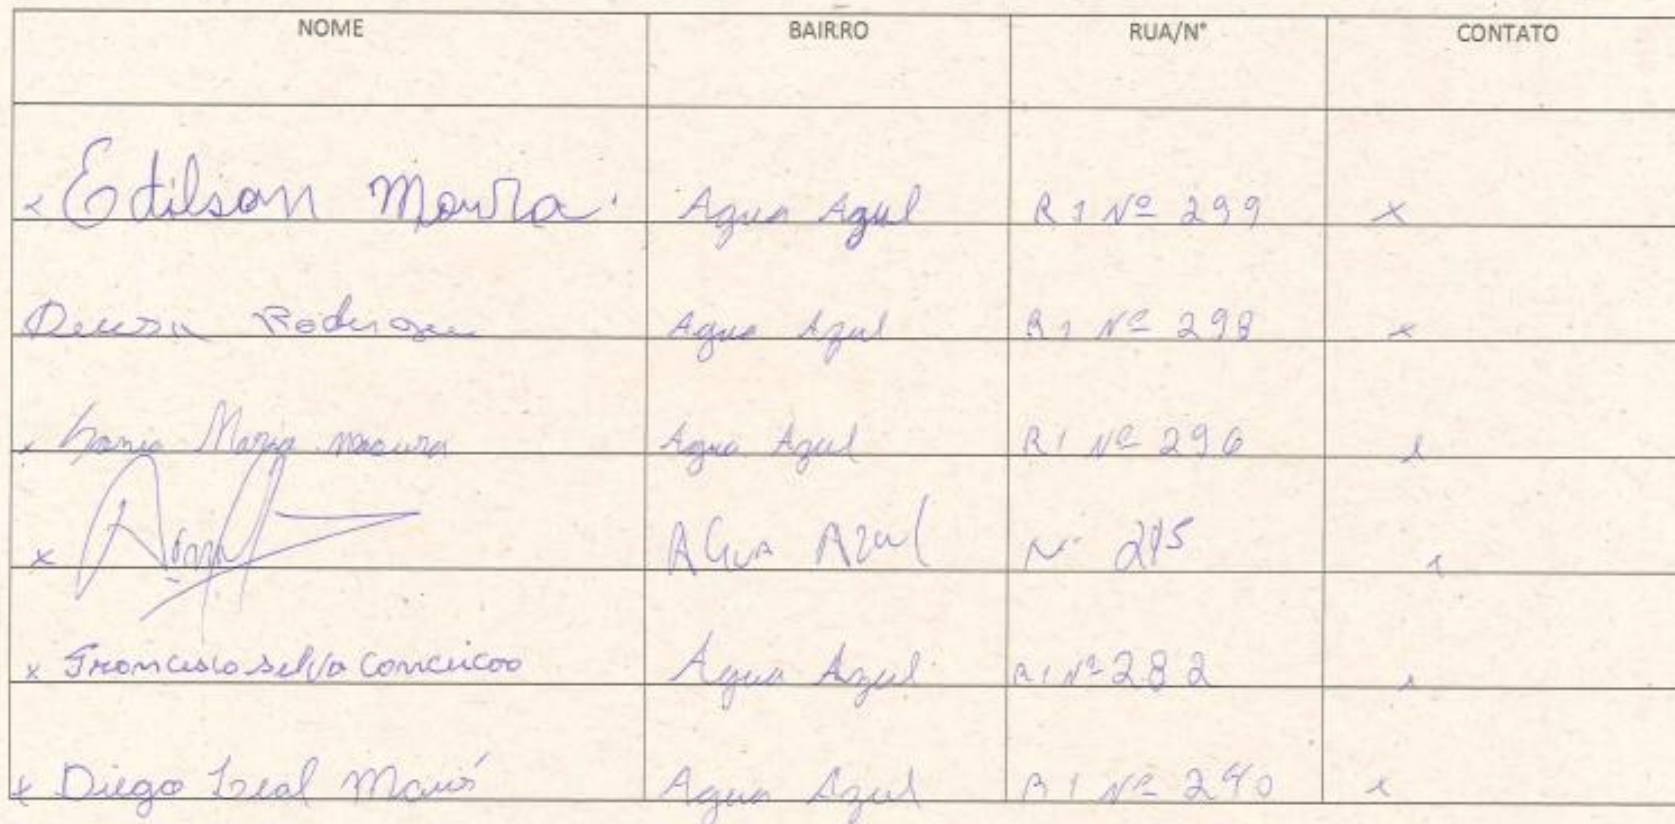 NOME BAIRRO RUA/N° CONTATO
x Edilson Moura. Agua Azul R 1 Nº 299 x
Rodrigues Agua Azul R 1 Nº 298 x
x Maria moura Agua Azul R 1 Nº 296 x
x AGua Azul Nº x
x Francisco silva Conceicao Agua Azul R 1 Nº 282 x
x Diego Leal Agua Azul R 1 Nº 290 x